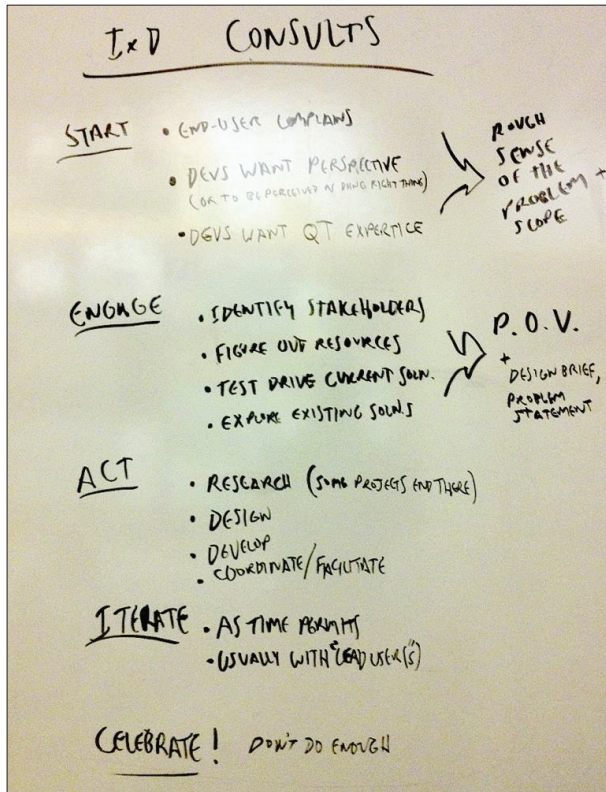 IxD CONSULTS
START • END-USER COMPLAINS
• DEVS WANT PERSPECTIVE
(OR TO BE PERCEIVED AS DOING RIGHT THING)
• DEVS WANT QT EXPERTICE
ROUGH
SENSE
OF THE
PROBLEM +
SCOPE
ENGAGE • IDENTIFY STAKEHOLDERS
• FIGURE OUT RESOURCES
• TEST DRIVE CURRENT SOLN.
• EXPLORE EXISTING SOLNS
P.O.V.
+ DESIGN BRIEF,
PROBLEM
STATEMENT
ACT • RESEARCH (SOME PROJECTS END THERE)
• DESIGN
• DEVELOP
• COORDINATE/FACILITATE
ITERATE • AS TIME PERMITS
• USUALLY WITH "LEAD USER(S)"
CELEBRATE! DON'T DO ENOUGH